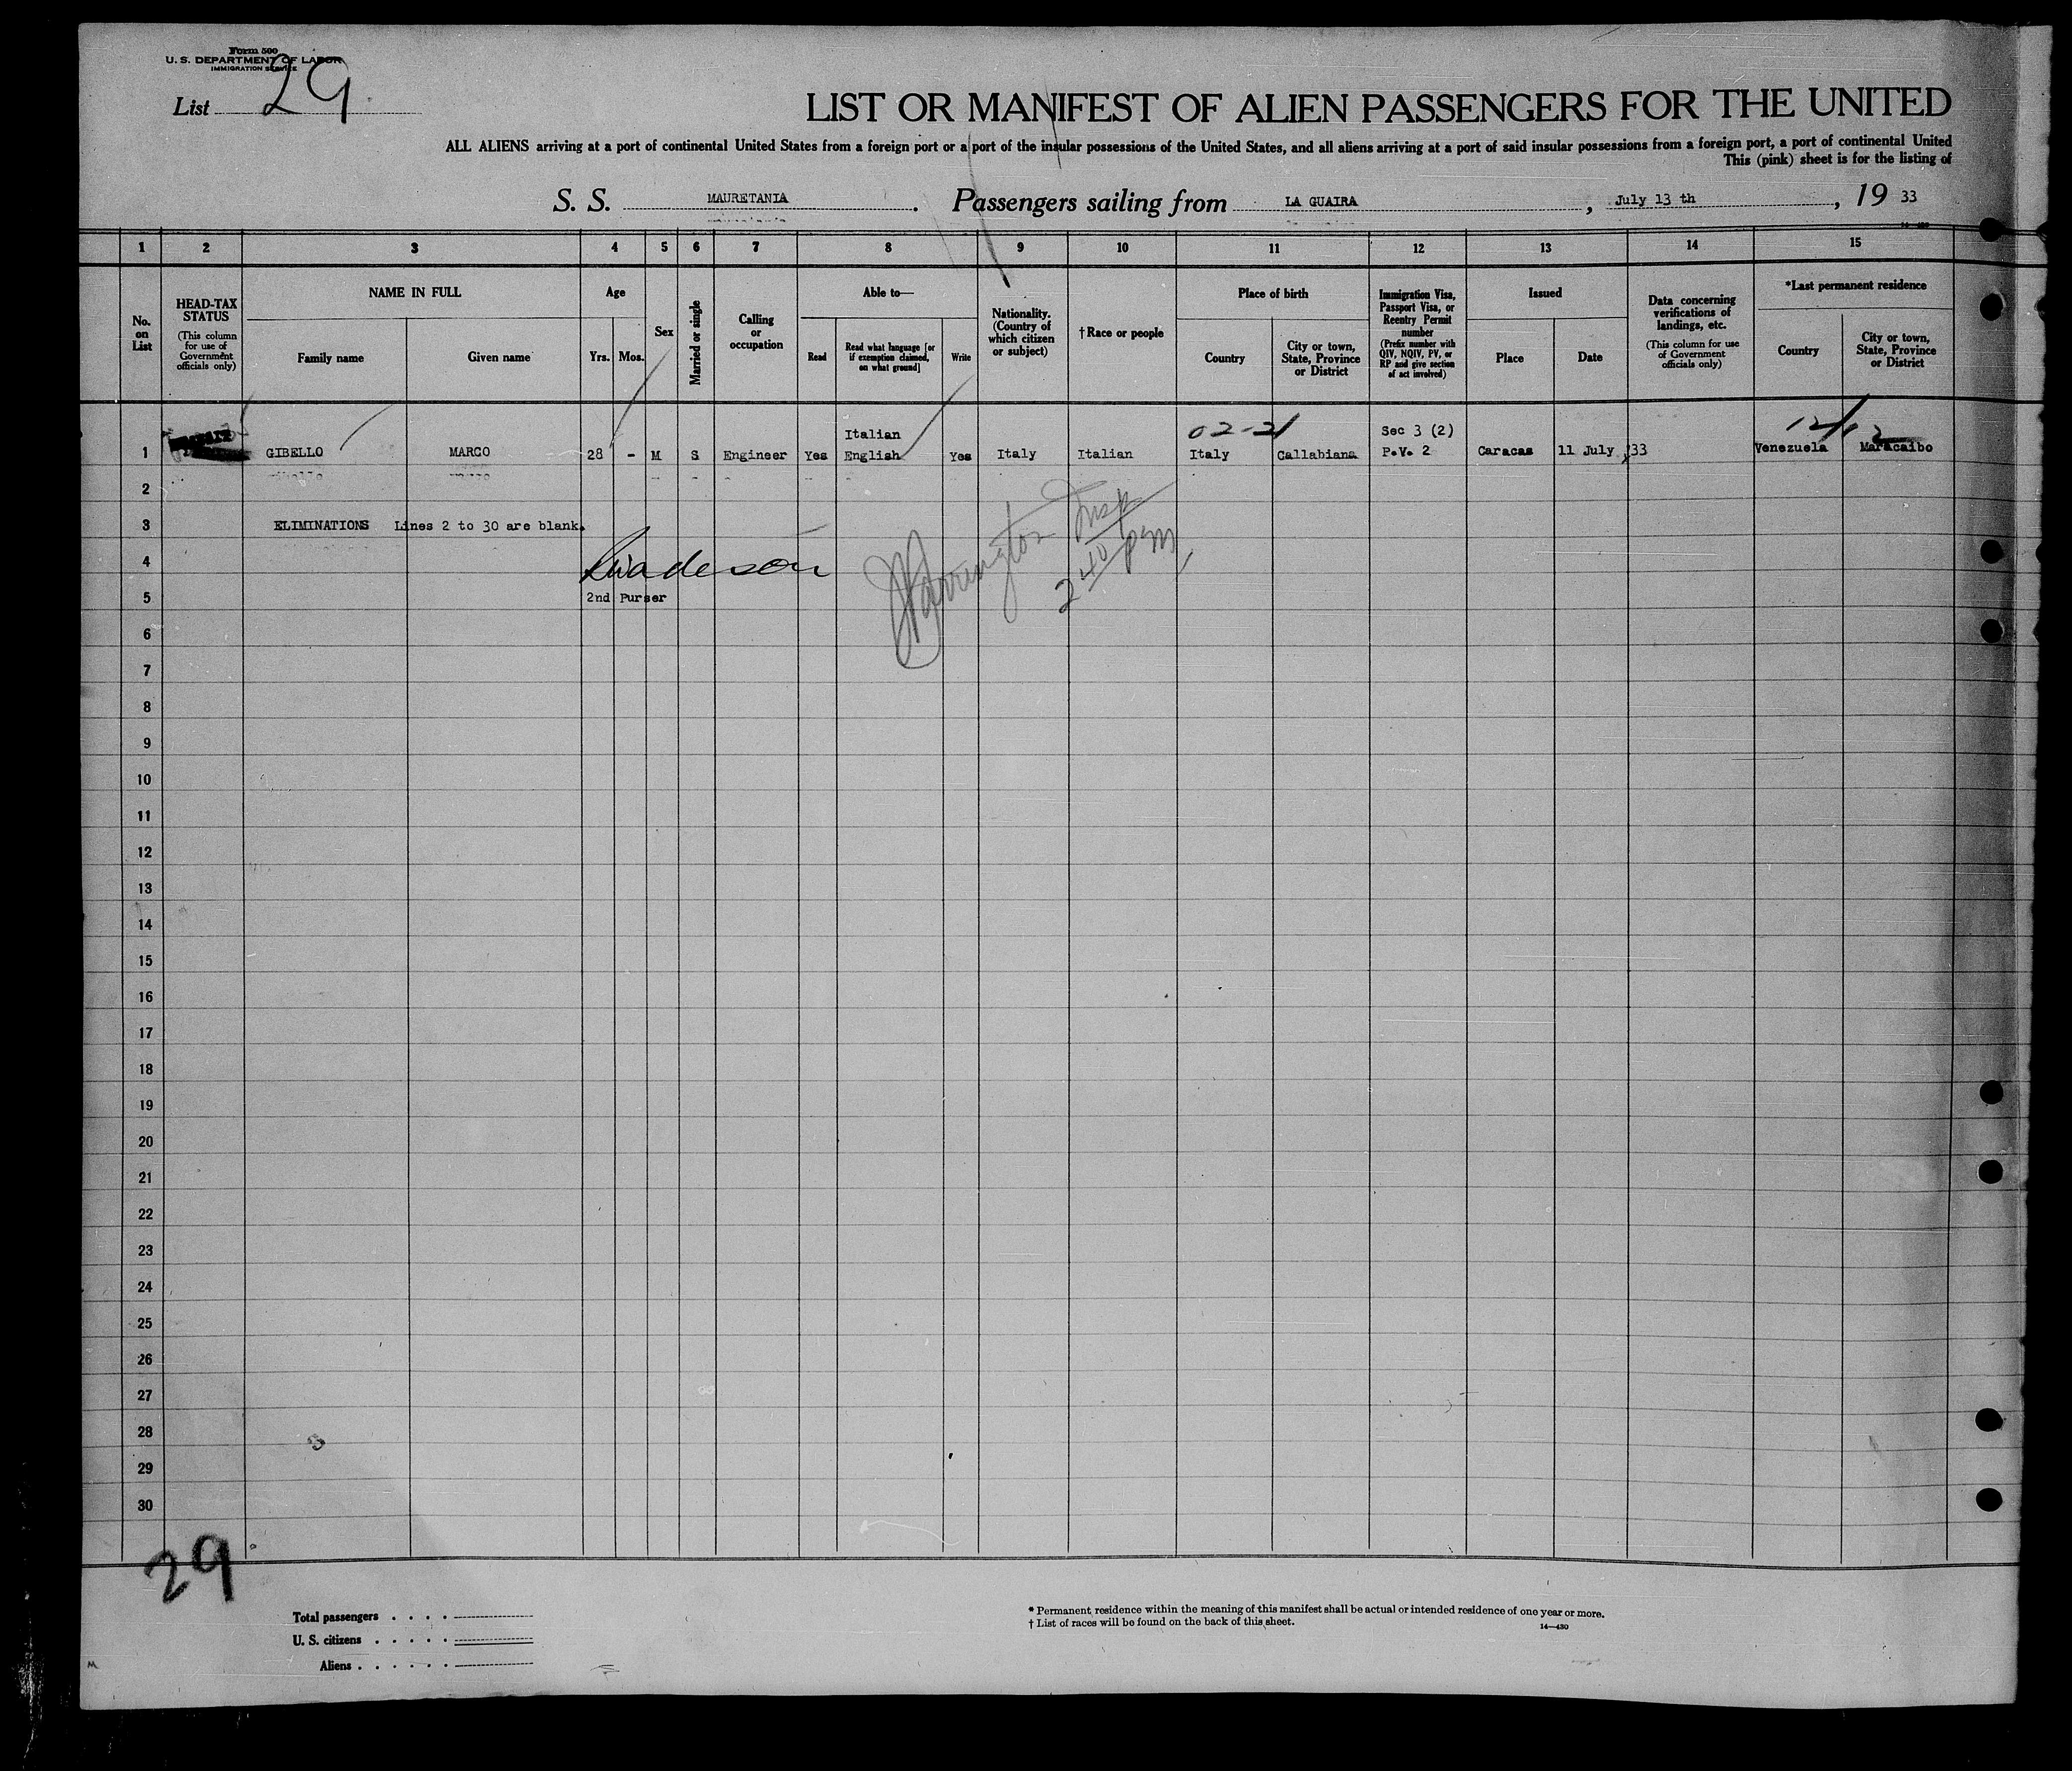 Form 500
U. S. DEPARTMENT OF LABOR
IMMIGRATION SERVICE
List 29
LIST OR MANIFEST OF ALIEN PASSENGERS FOR THE UNITED
ALL ALIENS arriving at a port of continental United States from a foreign port or a port of the insular possessions of the United States, and all aliens arriving at a port of said insular possessions from a foreign port, a port of continental United
This (pink) sheet is for the listing of
S. S. MAURETANIA . Passengers sailing from LA GUAIRA , July 13 th , 19 33
1 2 3 4 5 6 7 8 9 10 11 12 13 14 15
No. on List
HEAD-TAX STATUS
(This column for use of Government officials only)
NAME IN FULL
Family name Given name
Age
Yrs. Mos.
Sex
Married or single
Calling or occupation
Able to—
Read
Read what language [or if exemption claimed, on what ground]
Write
Nationality. (Country of which citizen or subject)
†Race or people
Place of birth
Country
City or town, State, Province or District
Immigration Visa, Passport Visa, or Reentry Permit number
(Prefix number with QIV, NQIV, PV, or RP and give section of act involved)
Issued
Place Date
Data concerning verifications of landings, etc.
(This column for use of Government officials only)
*Last permanent residence
Country
City or town, State, Province or District
02-21
Italian Sec 3 (2)
1 GIBELLO MARCO 28 - M S Engineer Yes English Yes Italy Italian Italy Callabiana P.V. 2 Caracas 11 July '33 Venezuela Maracaibo
2
3 ELIMINATIONS Lines 2 to 30 are blank.
4
5 2nd Purser
Insp
2 40 pm
6
7
8
9
10
11
12
13
14
15
16
17
18
19
20
21
22
23
24
25
26
27
28
29
30
29
Total passengers . . . .
U. S. citizens . . . . .
Aliens . . . . . .
* Permanent residence within the meaning of this manifest shall be actual or intended residence of one year or more.
† List of races will be found on the back of this sheet.
14—430